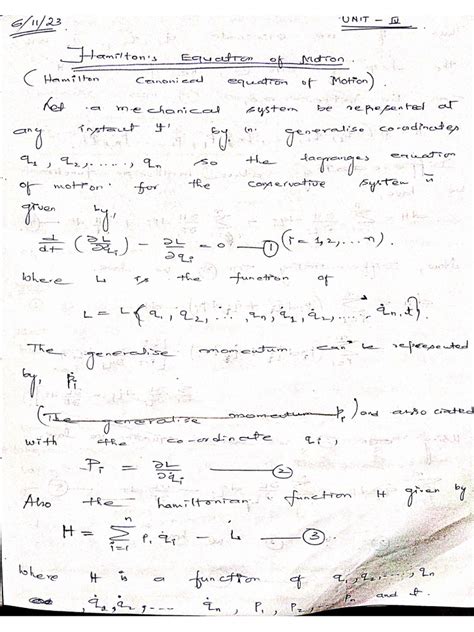 6/11/23 UNIT - III
Hamilton's Equation of Motion.
(Hamilton Canonical equation of Motion).
Let a mechanical system be represented at
any instant 't' by 'n' generalise co-ordinates
q₁, q₂, ....., qn so the lagranges equation
of motion for the conservative system is
given by,
d/dt (∂L/∂q̇i) - ∂L/∂qi = 0 — ① (i = 1,2,...n).
Where L is the function of
L = L{q₁, q₂, ..., qn, q̇₁, q̇₂, ..... q̇n, t}.
The generalise momentum can be represented
by, Pi
(The generalise momentum Pi) and
with the co-ordinate qi,
Pi = ∂L/∂q̇i — ②
Also the hamiltonian function H given by
H = n∑i=1 Pi q̇i - L — ③
Where H is a function of q₁, q₂, ..., qn
q̇₁, q̇₂, ... q̇n, P₁, P₂, ... Pn and t.